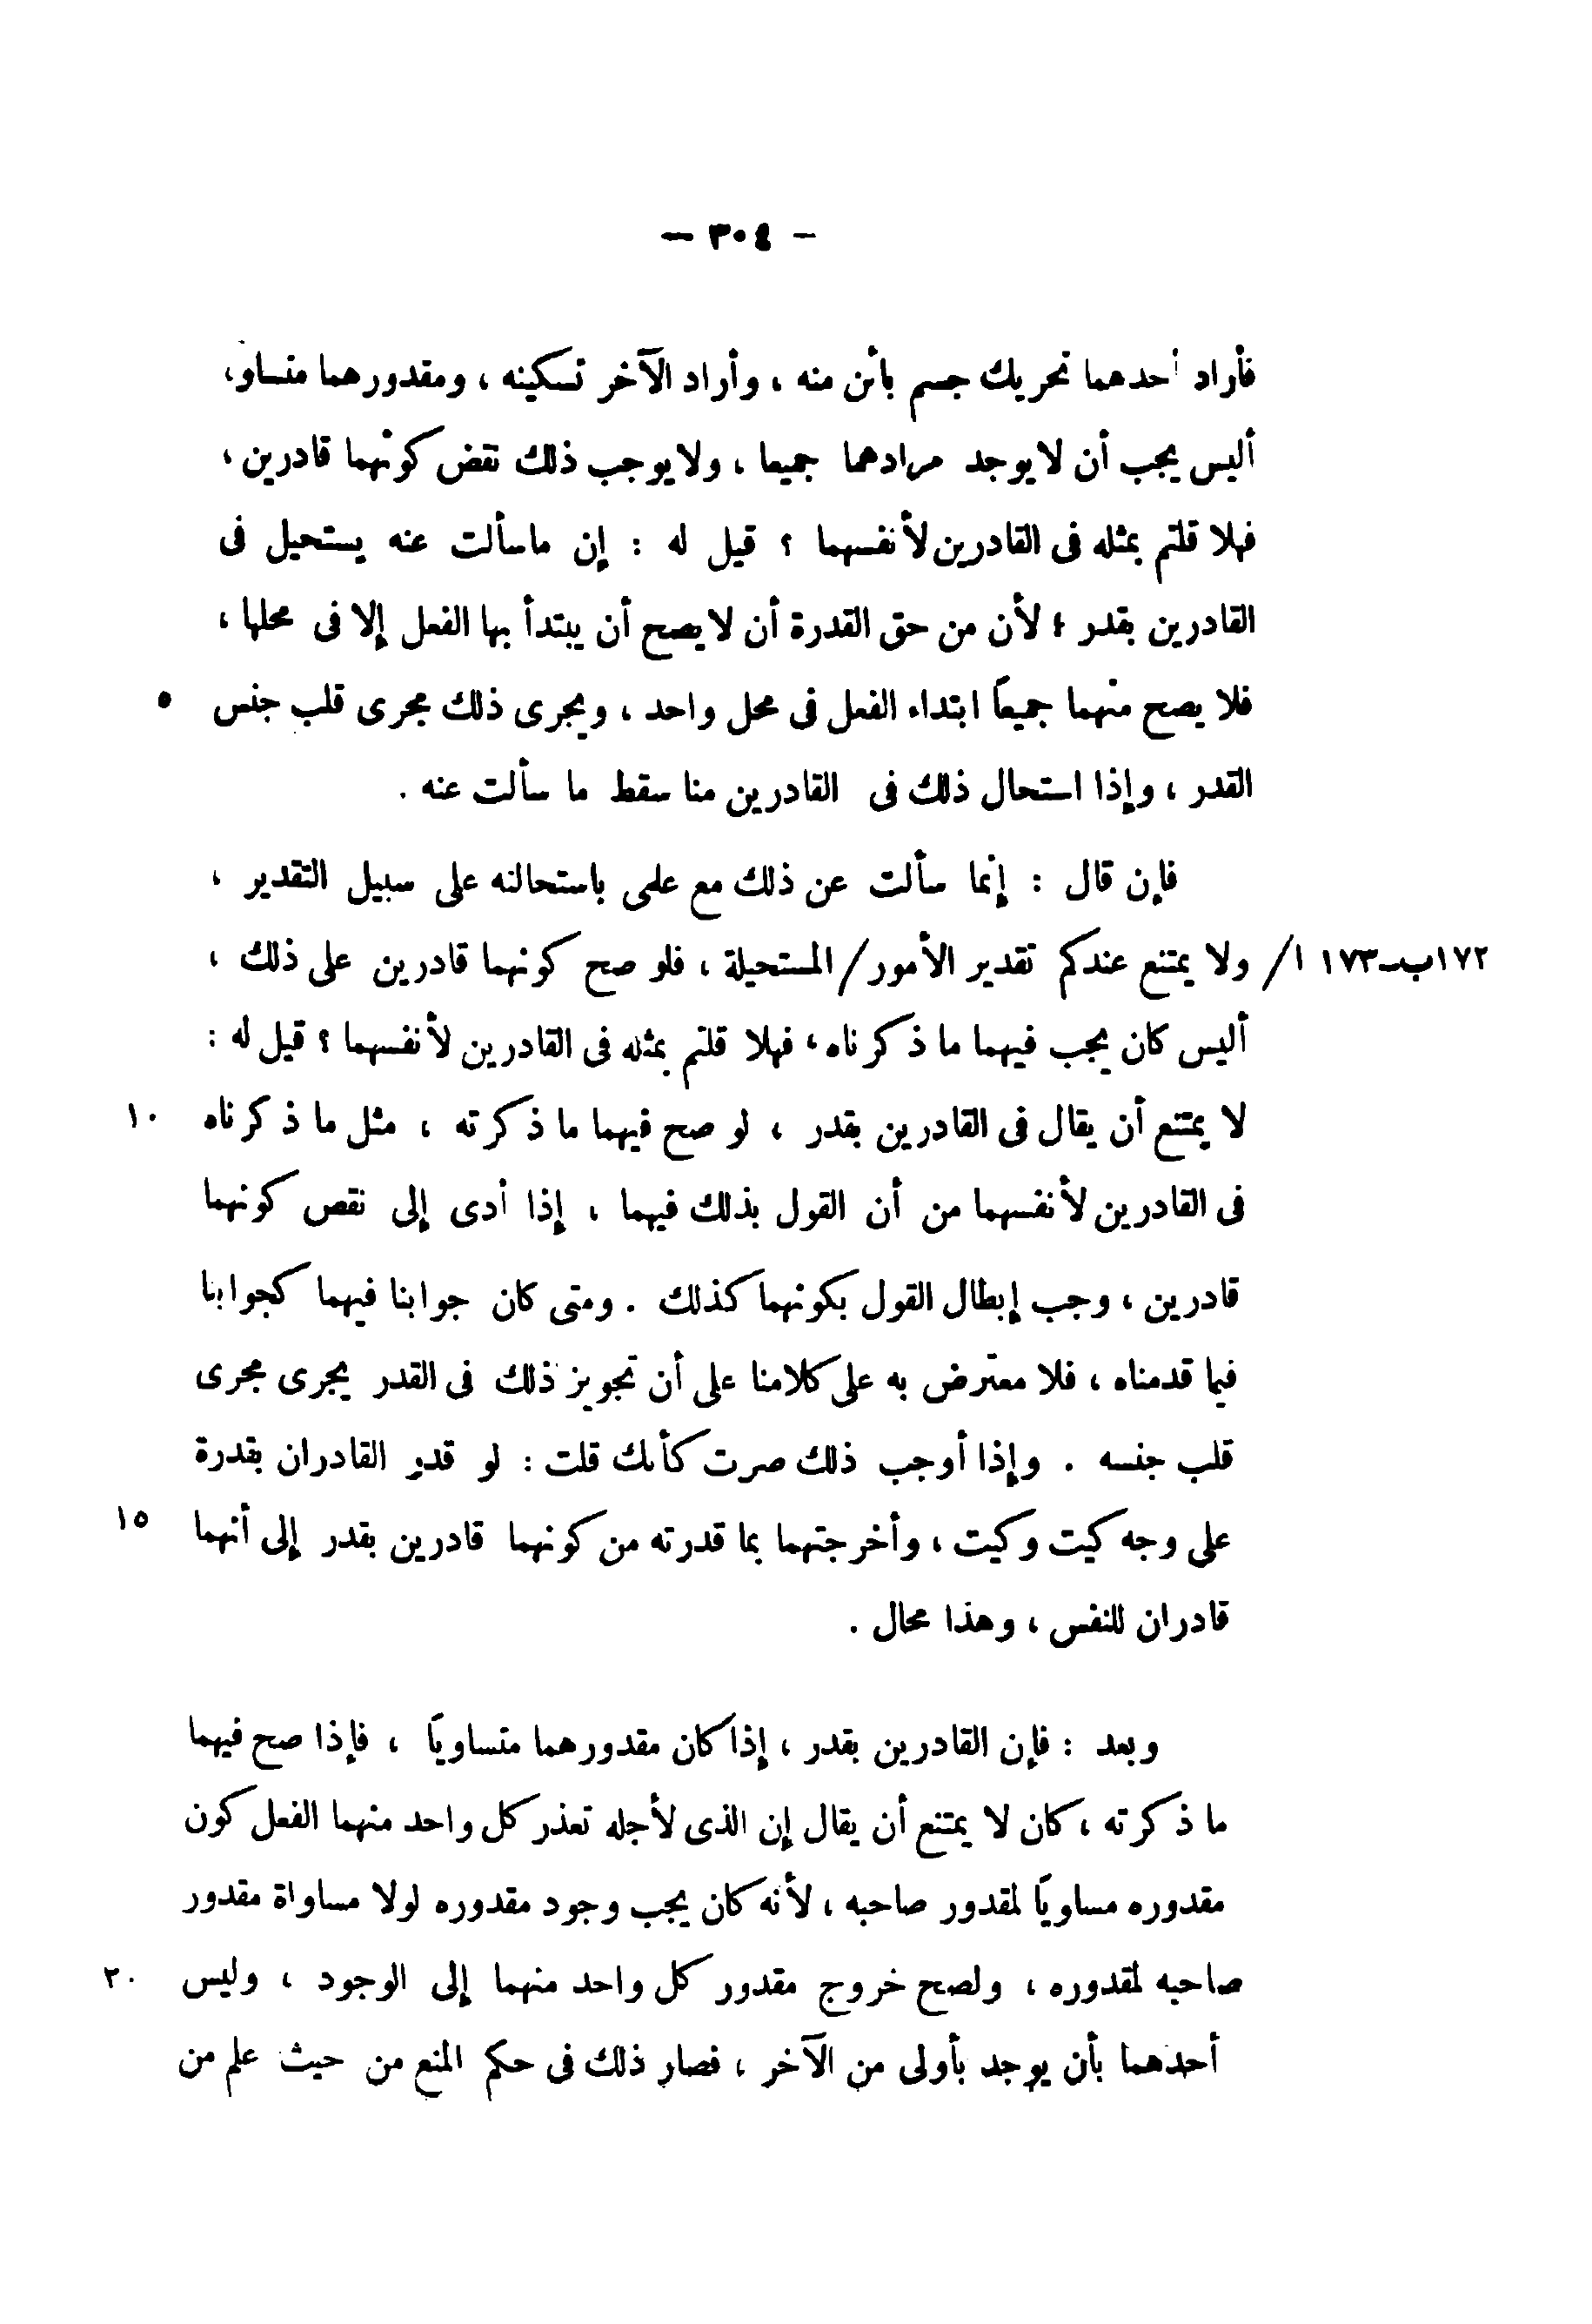 — ٣٠٤ —
فأراد أحدهما تحريك جسم بائن منه ، وأراد الآخر تسكينه ، ومقدورهما متساو،
أليس يجب أن لا يوجد مرادهما جميعا ، ولا يوجب ذلك نقض كونهما قادرين ،
فهلا قلتم بمثله فى القادرين لأنفسهما ؟ قيل له : إن ماسألت عنه يستحيل فى
القادرين بقدر ؛ لأن من حق القدرة أن لا يصح أن يبتدأ بها الفعل إلا فى محلها ،
فلا يصح منهما جميعاً ابتداء الفعل فى محل واحد ، ويجرى ذلك مجرى قلب جنس ٥
القدر ، وإذا استحال ذلك فى القادرين منا سقط ما سألت عنه .
فإن قال : إنما سألت عن ذلك مع علمى باستحالته على سبيل التقدير ،
١٧٢ب–١٧٣ ا/ ولا يمتنع عندكم تقدير الأمور/ المستحيلة ، فلو صح كونهما قادرين على ذلك ،
أليس كان يجب فيهما ما ذكرناه ، فهلا قلتم بمثله فى القادرين لأنفسهما ؟ قيل له :
لا يمتنع أن يقال فى القادرين بقدر ، لو صح فيهما ما ذكرته ، مثل ما ذكرناه ١٠
فى القادرين لأنفسهما من أن القول بذلك فيهما ، إذا أدى إلى نقص كونهما
قادرين ، وجب إبطال القول بكونهما كذلك . ومتى كان جوابنا فيهما كجوابنا
فيما قدمناه ، فلا معترض به على كلامنا على أن تجويز ذلك فى القدر يجرى مجرى
قلب جنسه . وإذا أوجب ذلك صرت كأنك قلت : لو قدر القادران بقدرة
على وجه كيت وكيت ، وأخرجتهما بما قدرته من كونهما قادرين بقدر إلى أنهما ١٥
قادران للنفس ، وهذا محال .
وبعد : فإن القادرين بقدر ، إذا كان مقدورهما متساوياً ، فإذا صح فيهما
ما ذكرته ، كان لا يمتنع أن يقال إن الذى لأجله تعذر كل واحد منهما الفعل كون
مقدوره مساوياً لمقدور صاحبه ، لأنه كان يجب وجود مقدوره لولا مساواة مقدور
صاحبه لمقدوره ، ولصح خروج مقدور كل واحد منهما إلى الوجود ، وليس ٢٠
أحدهما بأن يوجد بأولى من الآخر ، فصار ذلك فى حكم المنع من حيث علم من